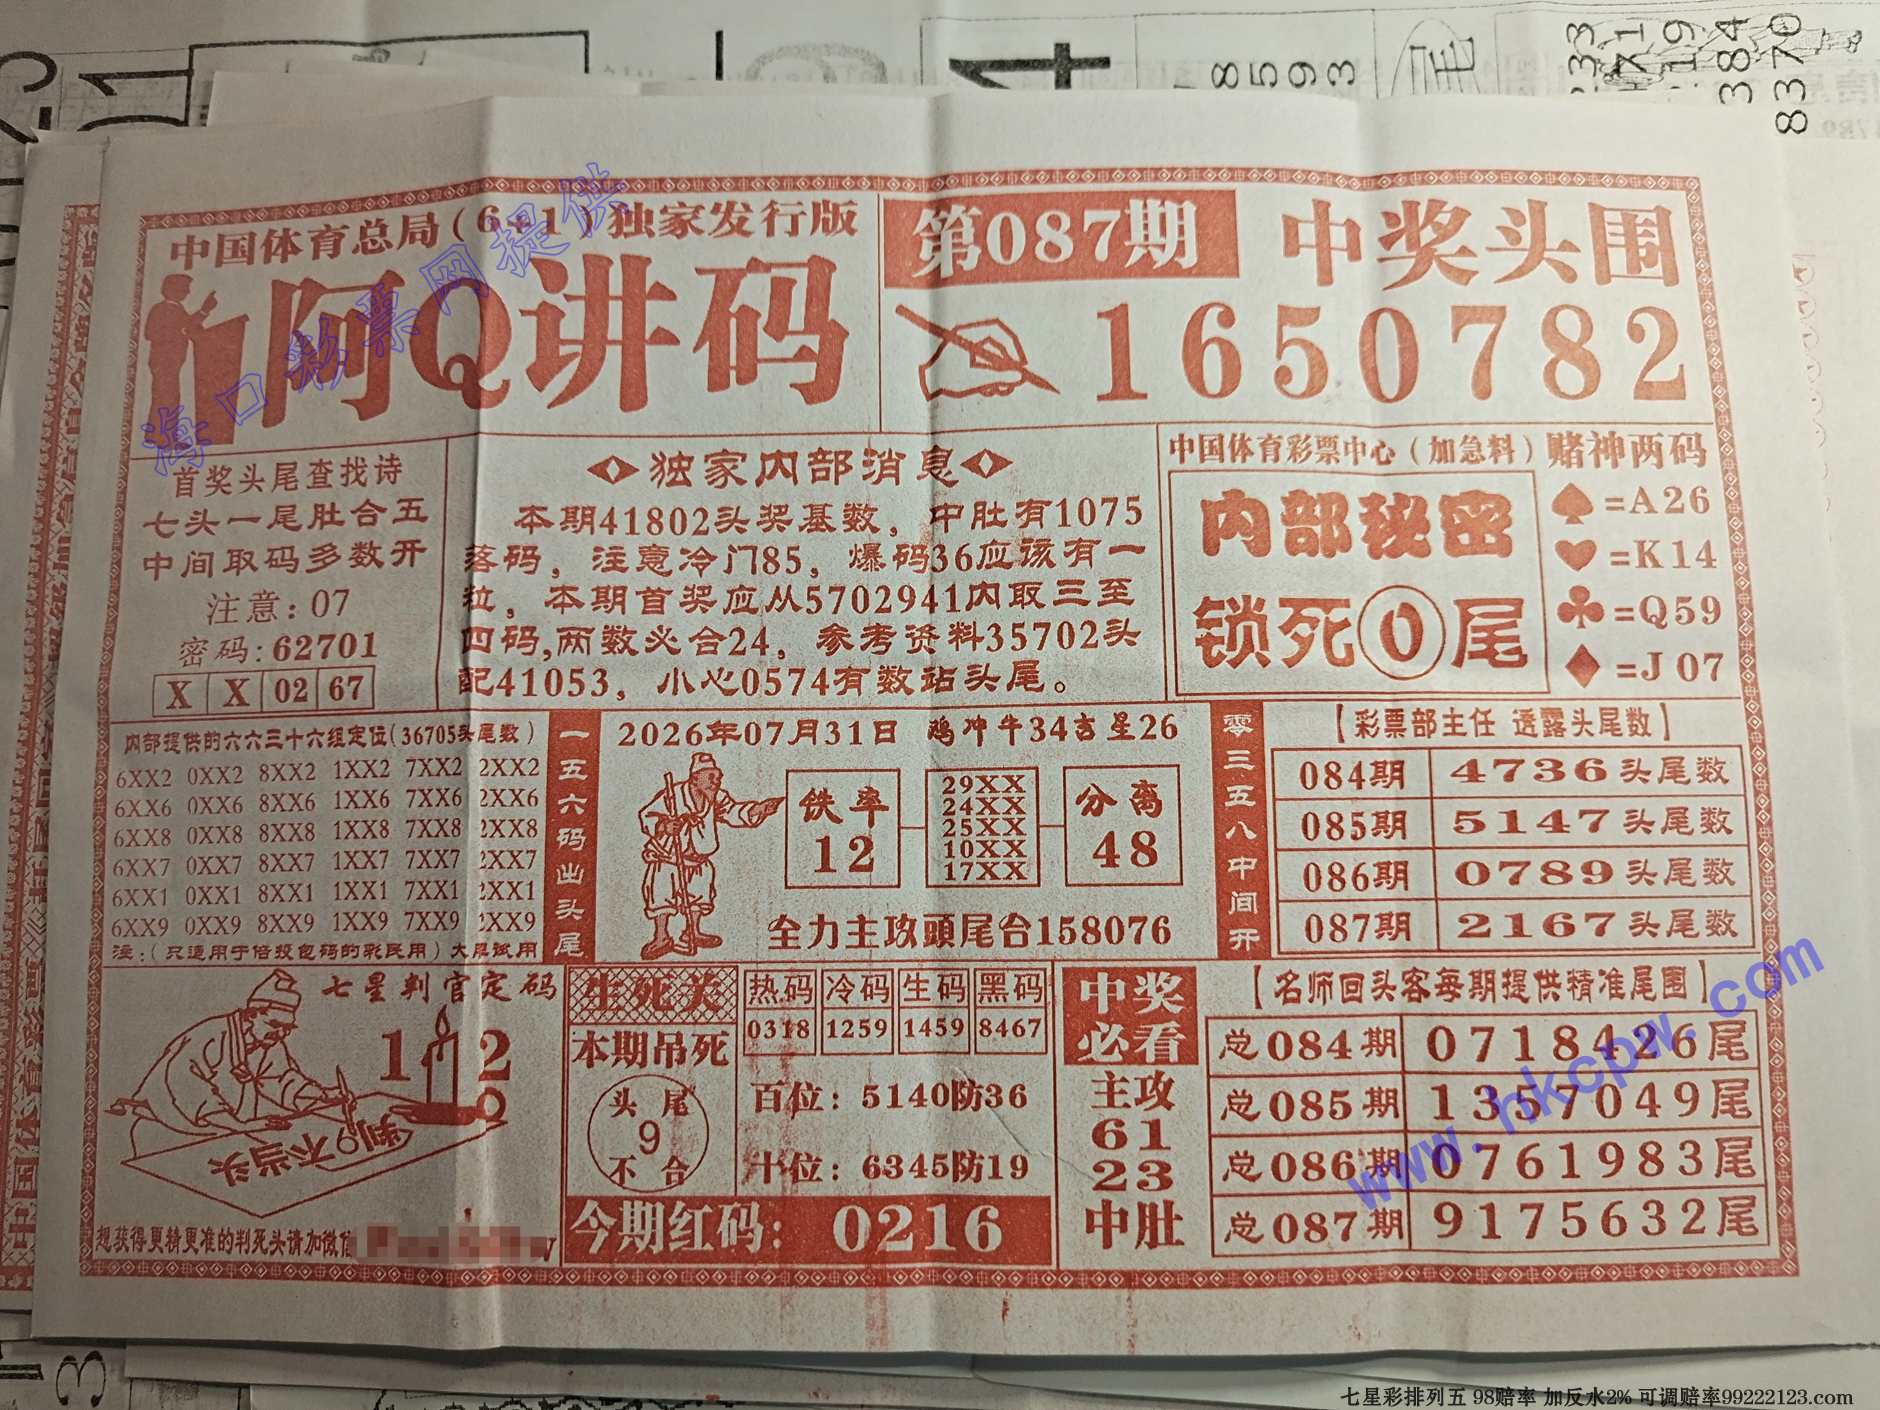 中国体育总局(6+1)独家发行版
阿Q讲码
第087期 中奖头围
1650782
首奖头尾查找诗
七头一尾肚合五
中间取码多数开
注意:07
密码:62701
X X 02 67
独家内部消息
本期41802头奖基数，中肚有1075
落码，注意冷门85，爆码36应该有一
粒，本期首奖应从5702941内取三至
四码,两数必合24，参考资料35702头
配41053，小心0574有数站头尾。
中国体育彩票中心(加急料)赌神两码
内部秘密
锁死0尾
♠=A26
♥=K14
♣=Q59
♦=J07
内部提供的六六三十六组定位(36705头尾数)
6XX2 0XX2 8XX2 1XX2 7XX2 2XX2
6XX6 0XX6 8XX6 1XX6 7XX6 2XX6
6XX8 0XX8 8XX8 1XX8 7XX8 2XX8
6XX7 0XX7 8XX7 1XX7 7XX7 2XX7
6XX1 0XX1 8XX1 1XX1 7XX1 2XX1
6XX9 0XX9 8XX9 1XX9 7XX9 2XX9
注:(只适用于倍投包码的彩民用)大胆试用
一五六码出头尾
2026年07月31日 鸡冲牛34吉星26
铁率
12
29XX
24XX
25XX
10XX
17XX
分离
48
全力主攻頭尾合158076
零三五八中间开
【彩票部主任 透露头尾数】
084期 4736头尾数
085期 5147头尾数
086期 0789头尾数
087期 2167头尾数
七星判官定码
1 2
判9不当头
想获得更精更准的判死头请加微信
生死关
本期吊死
头尾
9
不合
热码 冷码 生码 黑码
0318 1259 1459 8467
百位：5140防36
十位：6345防19
今期红码：0216
中奖
必看
主攻
61
23
中肚
【名师回头客每期提供精准尾围】
总084期 0718426尾
总085期 1357049尾
总086期 0761983尾
总087期 9175632尾
海口彩票网提供
www.hkcpw.com
8593
尾
384
8370
七星彩排列五 98赔率 加反水2% 可调赔率99222123.com